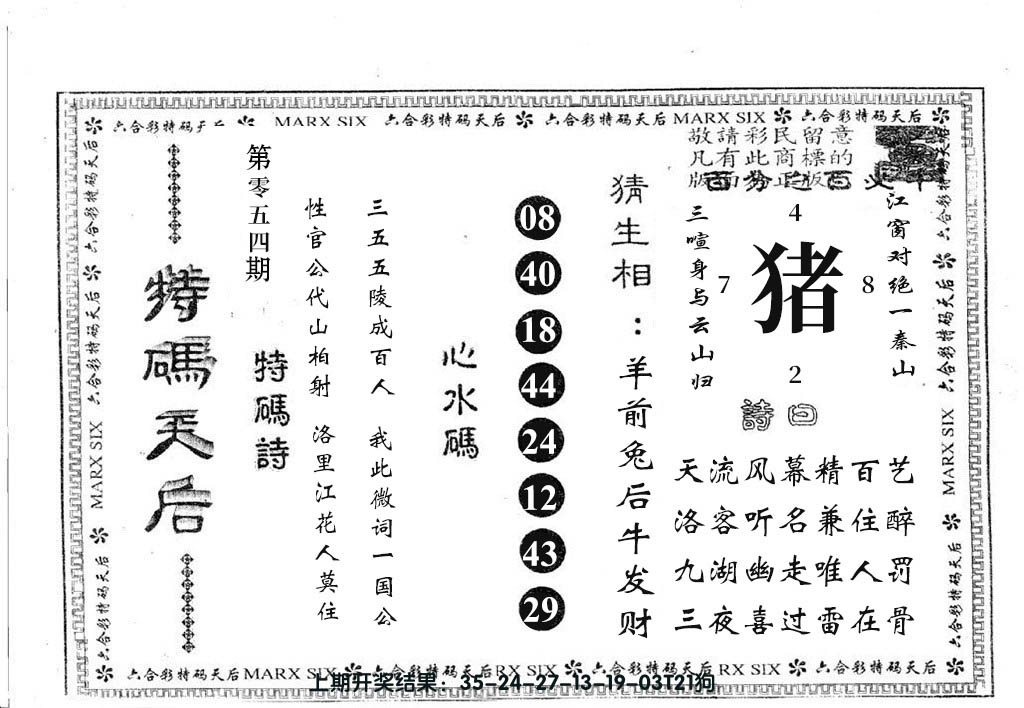 六合彩特码天后 MARX SIX 六合彩特码天后 六合彩特码天后 MARX SIX 六合彩特码天后
敬請彩民留意
凡有此商標的
江窗对绝一秦山
三喧身与云山归
4
7 猪 8
2
詩曰
天流风幕精百艺
洛客听名兼住醉
九湖幽走唯人罚
三夜喜过雷在骨
猜生相：羊前兔后牛发财
08
40
18
44
24
12
43
29
心水碼
三五五陵成百人 我此微词一国公
性官公代山柏射 洛里江花人莫住
特碼詩
第零五四期
特碼天后
六合彩特码天后 MARX SIX 六合彩特码天后
六合彩特码天后 MARX SIX 六合彩特码天后
六合彩特码天后 MARX SIX 六合彩特码天后 RX SIX 六合彩特码天后 RX SIX 六合彩特码天后
上期开奖结果：35-24-27-13-19-03T21狗